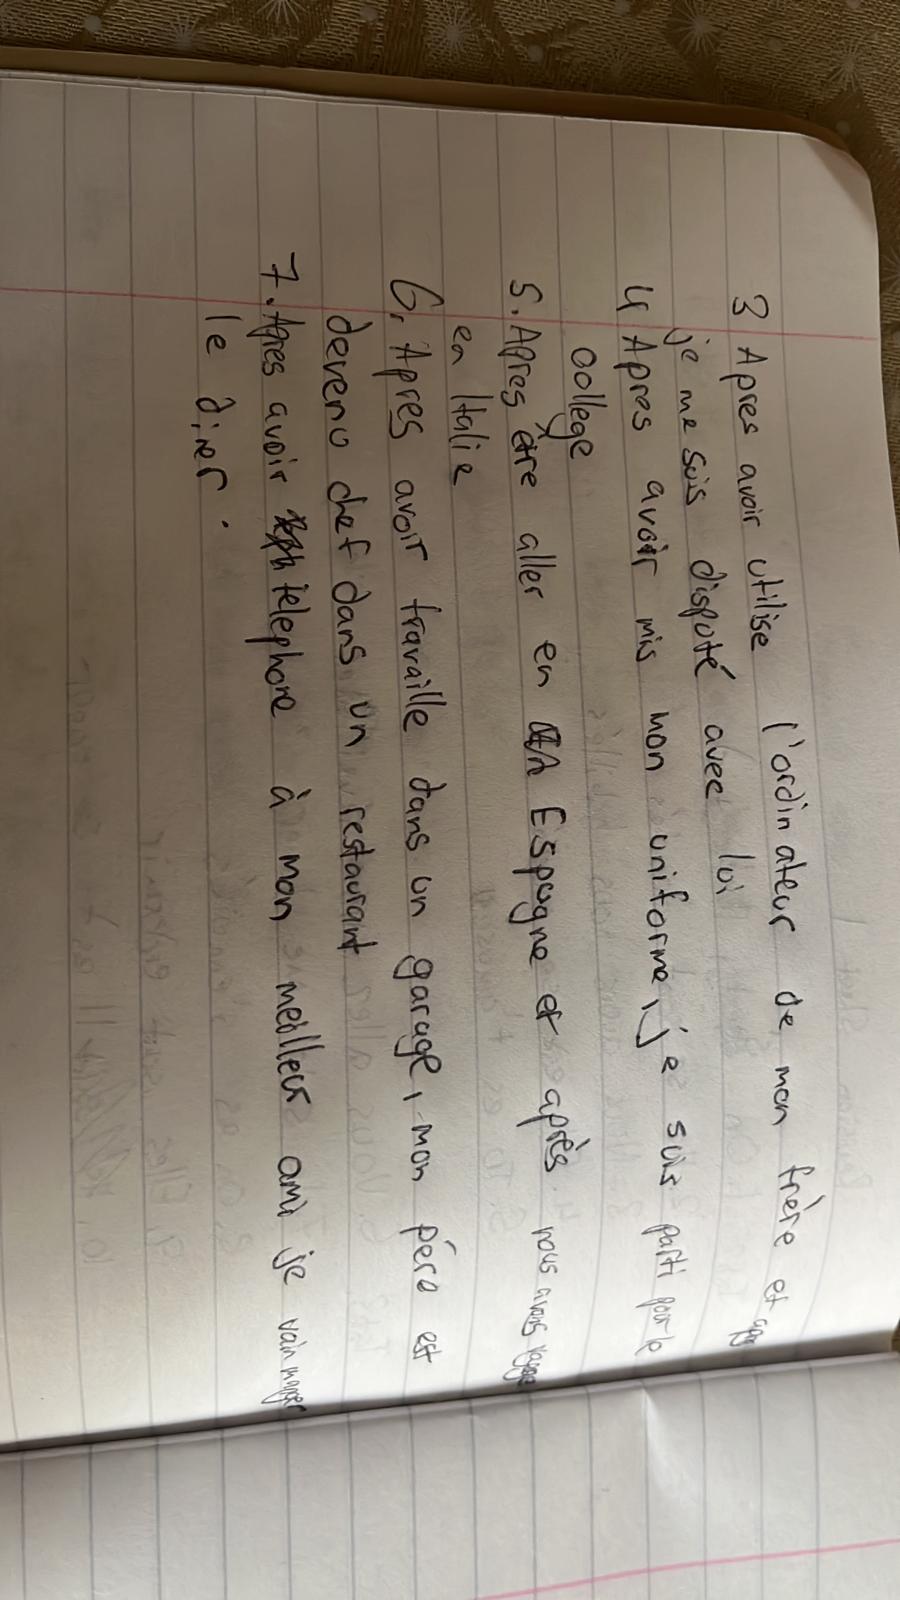 3 Apres avoir utilise l'ordinateur de mon frère et
je me suis disputé avec lui
4 Apres avoir mis mon uniforme, je suis parti pour le
college
5. Apres être aller en Espagne et après nous avons
en Italie
6. Apres avoir travaille dans un garage, mon pére est
devenu chef dans un restaurant
7. Apres avoir telephone à mon meilleur ami je
le diner.